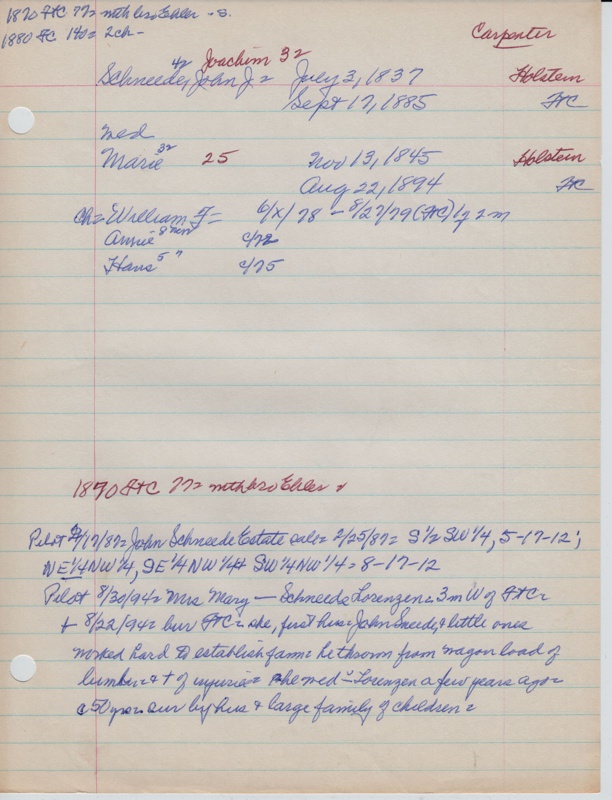 1870 FtC 77= mth bro Ehler - s.
1880 FC 140= 2ch -
Carpenter
Joachim 32
Schneede, John J. = 42 July 3, 1837 Holstein
Sept 17, 1885 FC
med
Marie 32 25 Nov 13, 1845 Holstein
Aug 22, 1894 FC
Ch= William F= 6/x/78 - 8/27/79 (FtC) 1y 2m
Annie 8 Neb c/72
Hans 5 " c/75
1870 FtC 77= mth bro Ehler
Pilot 2/17/87= John Schneede Estate sale= 2/25/87= S 1/2 SW 1/4, 5-17-12;
NE 1/4 NW 1/4, SE 1/4 NW 1/4 + SW 1/4 NW 1/4 = 8-17-12
Pilot 8/30/94= Mrs Marg - Schneede Lorenzen = 3m W of FtC=
+ 8/22/94= bur FtC= she, first hus= John Sneede, & little ones
worked hard to establish farm= he thrown from wagon load of
lumber= & + of injuries= she med - Lorenzen a few years ago=
c 50 yrs= sur by hus & large family of children=